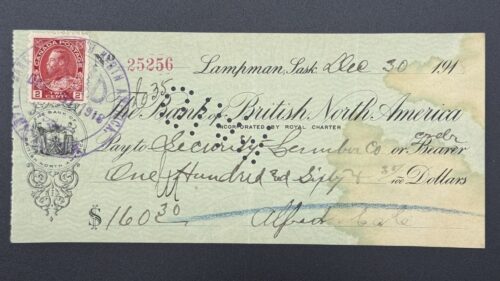 CANADA POSTAGE
2 CENTS 2
25256
Lampman, Sask. Dec 30 191
No 35
The Bank of British North America
INCORPORATED BY ROYAL CHARTER
order
Pay to Lumber Co or Bearer
One Hundred & Sixty 30/100 Dollars
$160 30
Alfred